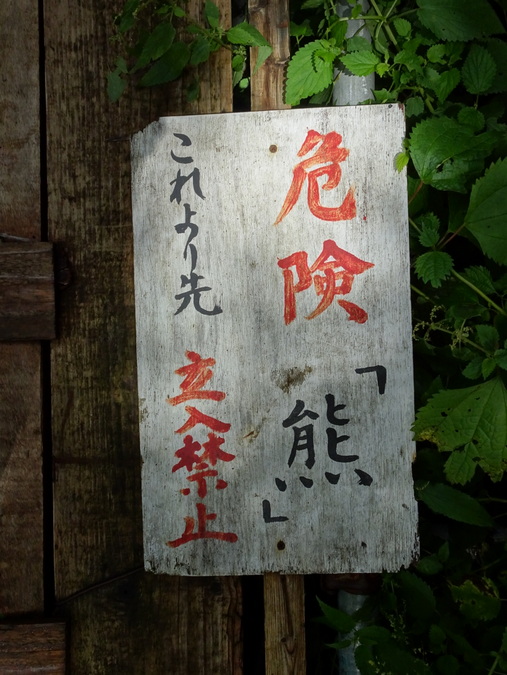 危険「熊」
これより先 立入禁止